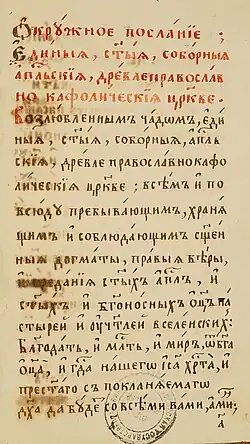 Ѻкружное посланїе ;
Єдиныѧ, ст҃ыѧ, соборныѧ
ап҃льскїѧ, древлеправослав
но каѳолическїѧ цр҃кве ·
Возлюбленнымъ чадомъ, еди
ныѧ, ст҃ыѧ, соборныѧ, ап҃ль
скїѧ, древле православнокаѳо
лическїѧ цр҃кве ; всѣмъ и по
всюду пребывающимъ, хранѧ
щимъ и соблюдающимъ сщ҃ен
ныѧ догматы, правыѧ вѣры,
и преданїѧ ст҃ыхъ ап҃лъ, и
ст҃ыхъ и бг҃оносныхъ ѻц҃ъ па
стырей и оучт҃елей вселенскихъ :
Благодать, и мл҃ть, и миръ, ѿ бг҃а
ѻц҃а, и гд҃а нашегѡ іс҃а хр҃та, и
прест҃агѡ с покланѧематѡ
дх҃а да буде со всѣми вами, ами ;
а